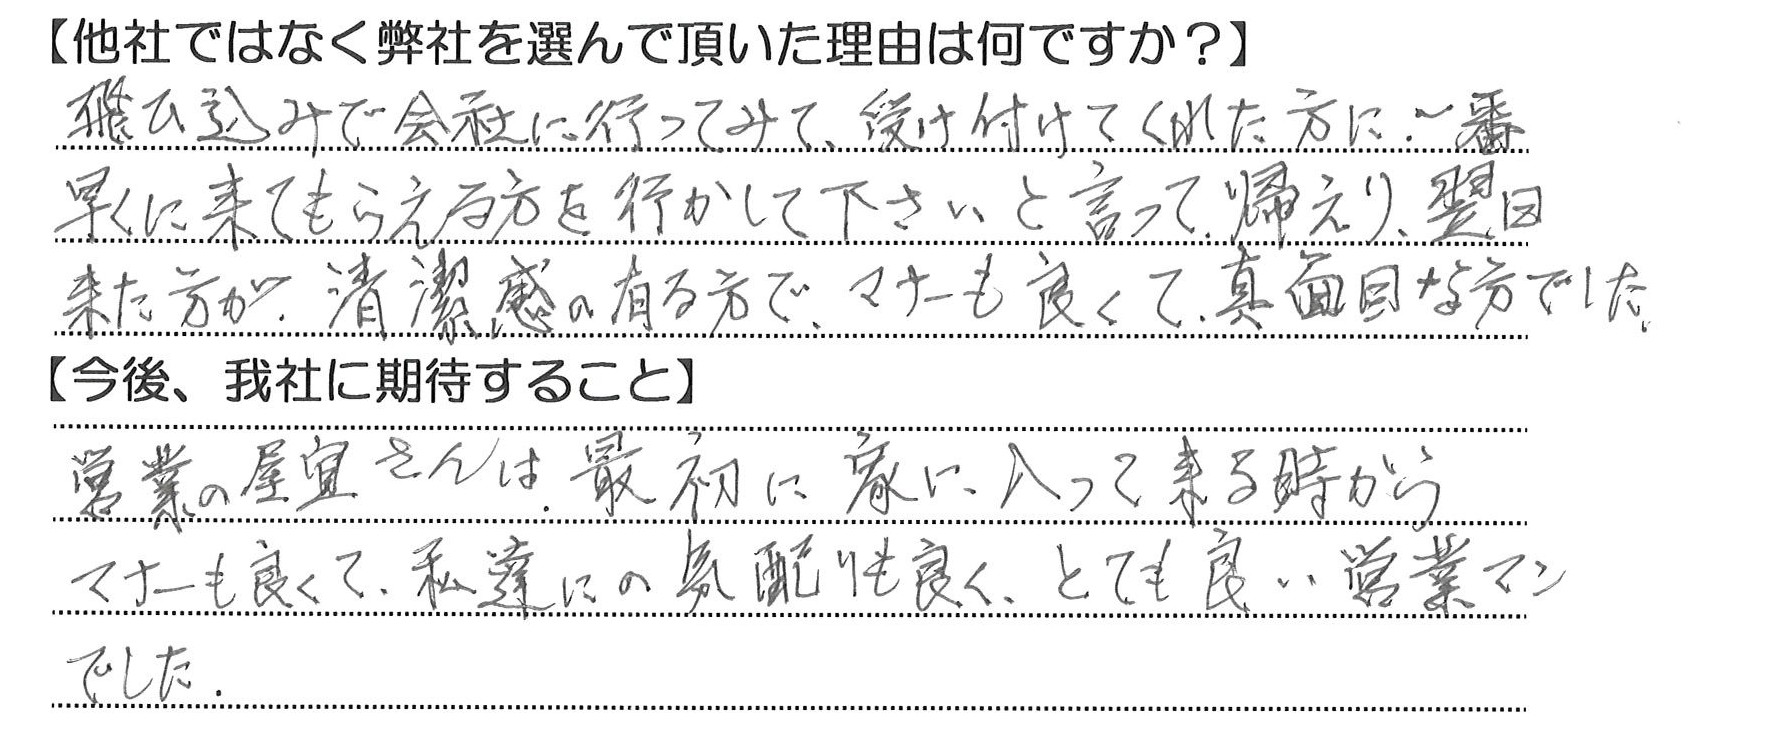 【他社ではなく弊社を選んで頂いた理由は何ですか?】
飛び込みで会社に行ってみて、受け付けてくれた方に、一番
早くに来てもらえる方を行かして下さいと言って、帰えり、翌日
来た方が、清潔感の有る方で、マナーも良くて、真面目な方でした。
【今後、我社に期待すること】
営業の屋宜さんは、最初に家に入って来る時から
マナーも良くて、私達にの気配りも良く、とても良い営業マン
でした.